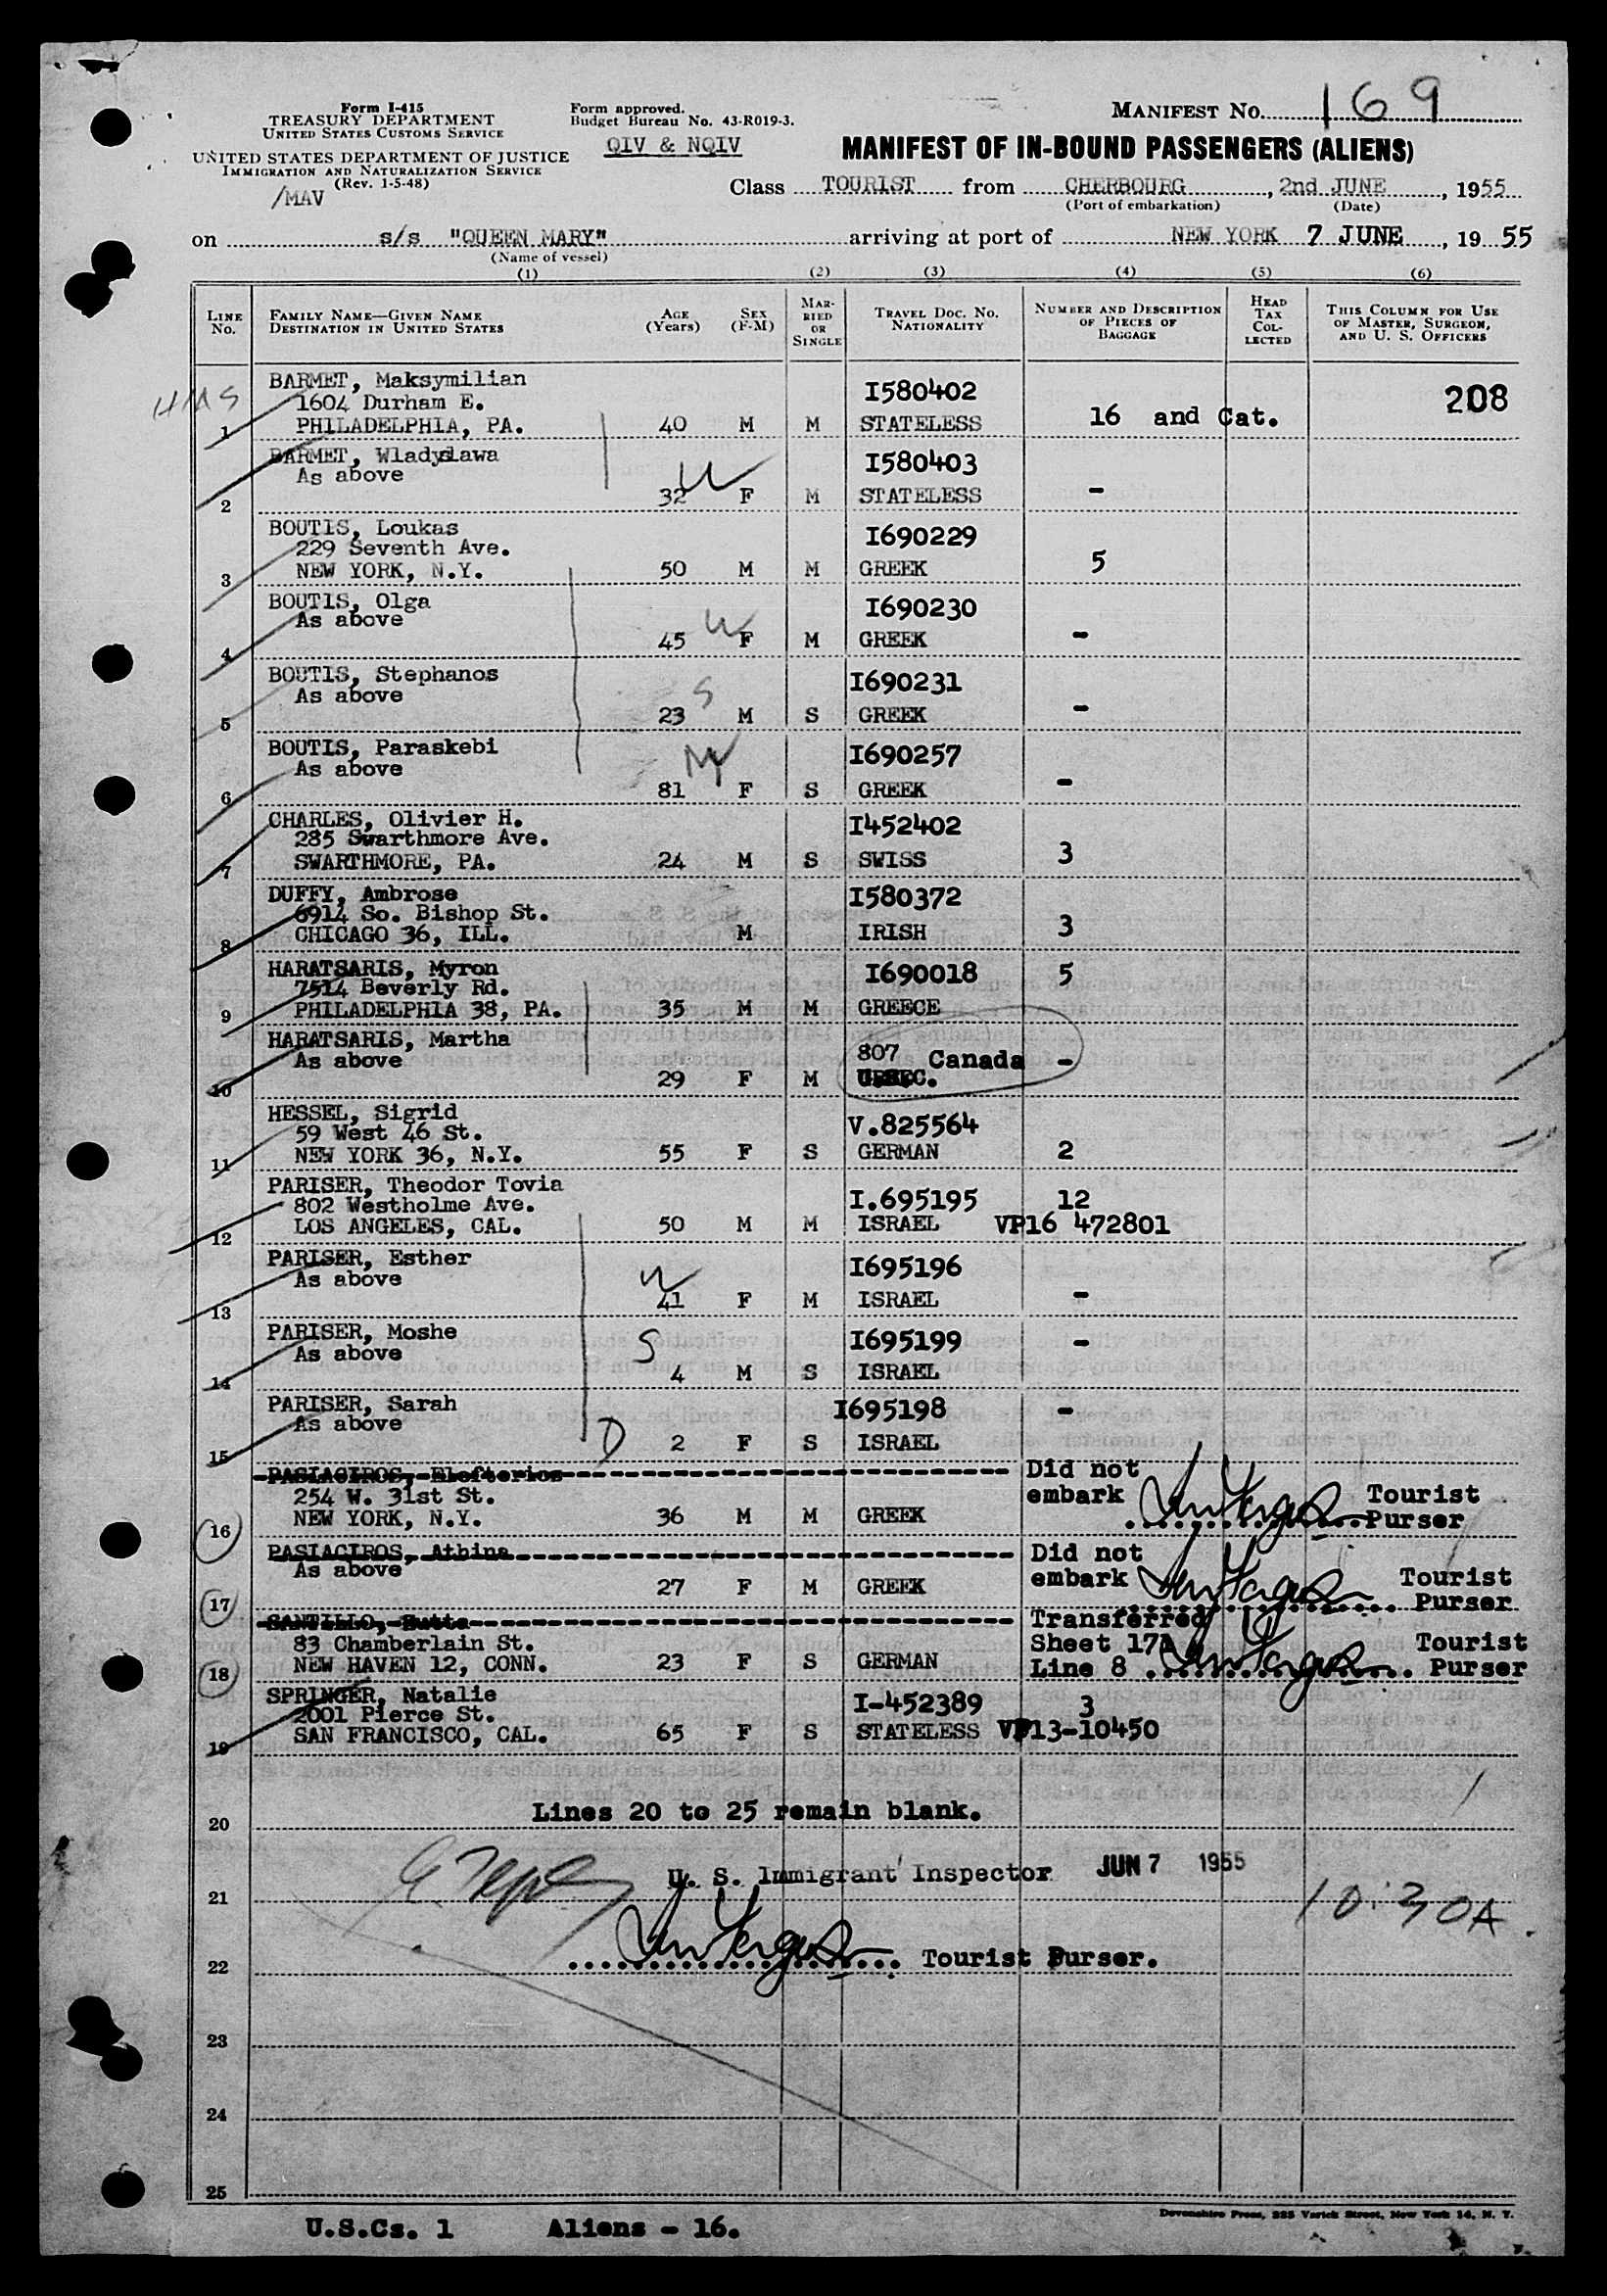 Form I-415
TREASURY DEPARTMENT
UNITED STATES CUSTOMS SERVICE
UNITED STATES DEPARTMENT OF JUSTICE
IMMIGRATION AND NATURALIZATION SERVICE
(Rev. 1-5-48)
/MAV
Form approved.
Budget Bureau No. 43-R019-3.
QIV & NQIV
MANIFEST NO. 169
MANIFEST OF IN-BOUND PASSENGERS (ALIENS)
Class TOURIST from CHERBOURG, 2nd JUNE, 1955
(Port of embarkation) (Date)
on s/s "QUEEN MARY" arriving at port of NEW YORK 7 JUNE, 1955
(Name of vessel)
(1) (2) (3) (4) (5) (6)
LINE No. FAMILY NAME—GIVEN NAME DESTINATION IN UNITED STATES AGE (Years) SEX (F-M) MARRIED OR SINGLE TRAVEL DOC. NO. NATIONALITY NUMBER AND DESCRIPTION OF PIECES OF BAGGAGE HEAD TAX COLLECTED THIS COLUMN FOR USE OF MASTER, SURGEON, AND U. S. OFFICERS
HMS
BARMET, Maksymilian I580402 208
1604 Durham E.
1 PHILADELPHIA, PA. 40 M M STATELESS 16 and Cat.
BARMET, Wladyslawa I580403
As above W
2 32 F M STATELESS -
BOUTIS, Loukas I690229
229 Seventh Ave.
3 NEW YORK, N.Y. 50 M M GREEK 5
BOUTIS, Olga I690230
As above W
4 45 F M GREEK -
BOUTIS, Stephanos I690231
As above S
5 23 M S GREEK -
BOUTIS, Paraskebi I690257
As above M
6 81 F S GREEK -
CHARLES, Olivier H. I452402
285 Swarthmore Ave.
7 SWARTHMORE, PA. 24 M S SWISS 3
DUFFY, Ambrose I580372
6914 So. Bishop St.
8 CHICAGO 36, ILL. M IRISH 3
HARATSARIS, Myron I690018 5
7514 Beverly Rd.
9 PHILADELPHIA 38, PA. 35 M M GREECE
HARATSARIS, Martha
As above 807 Canada -
10 29 F M U.S.C.
HESSEL, Sigrid V.825564
59 West 46 St.
11 NEW YORK 36, N.Y. 55 F S GERMAN 2
PARISER, Theodor Tovia I.695195 12
802 Westholme Ave.
12 LOS ANGELES, CAL. 50 M M ISRAEL VP16 472801
PARISER, Esther I695196
As above W
13 41 F M ISRAEL -
PARISER, Moshe I695199 -
As above S
14 4 M S ISRAEL
PARISER, Sarah I695198 -
As above D
15 2 F S ISRAEL
PASIACIROS, Elefterios Did not
254 W. 31st St. embark Tourist
16 NEW YORK, N.Y. 36 M M GREEK Purser
PASIACIROS, Athina Did not
As above embark Tourist
17 27 F M GREEK Purser
SANTILLO, Jutta Transferred
83 Chamberlain St. Sheet 171 Tourist
18 NEW HAVEN 12, CONN. 23 F S GERMAN Line 8 Purser
SPRINGER, Natalie I-452389 3
2001 Pierce St.
19 SAN FRANCISCO, CAL. 65 F S STATELESS VP13-10450
20 Lines 20 to 25 remain blank.
U. S. Immigrant Inspector JUN 7 1955
21 10:30A
22 Tourist Purser.
23
24
25
Devonshire Press, 225 Varick Street, New York 14, N. Y.
U.S.Cs. 1 Aliens - 16.